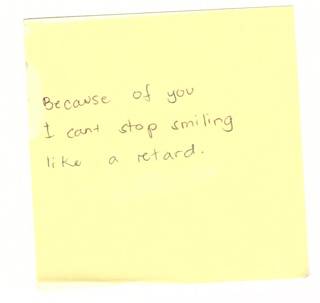 Because of you
I cant stop smiling
like a retard.